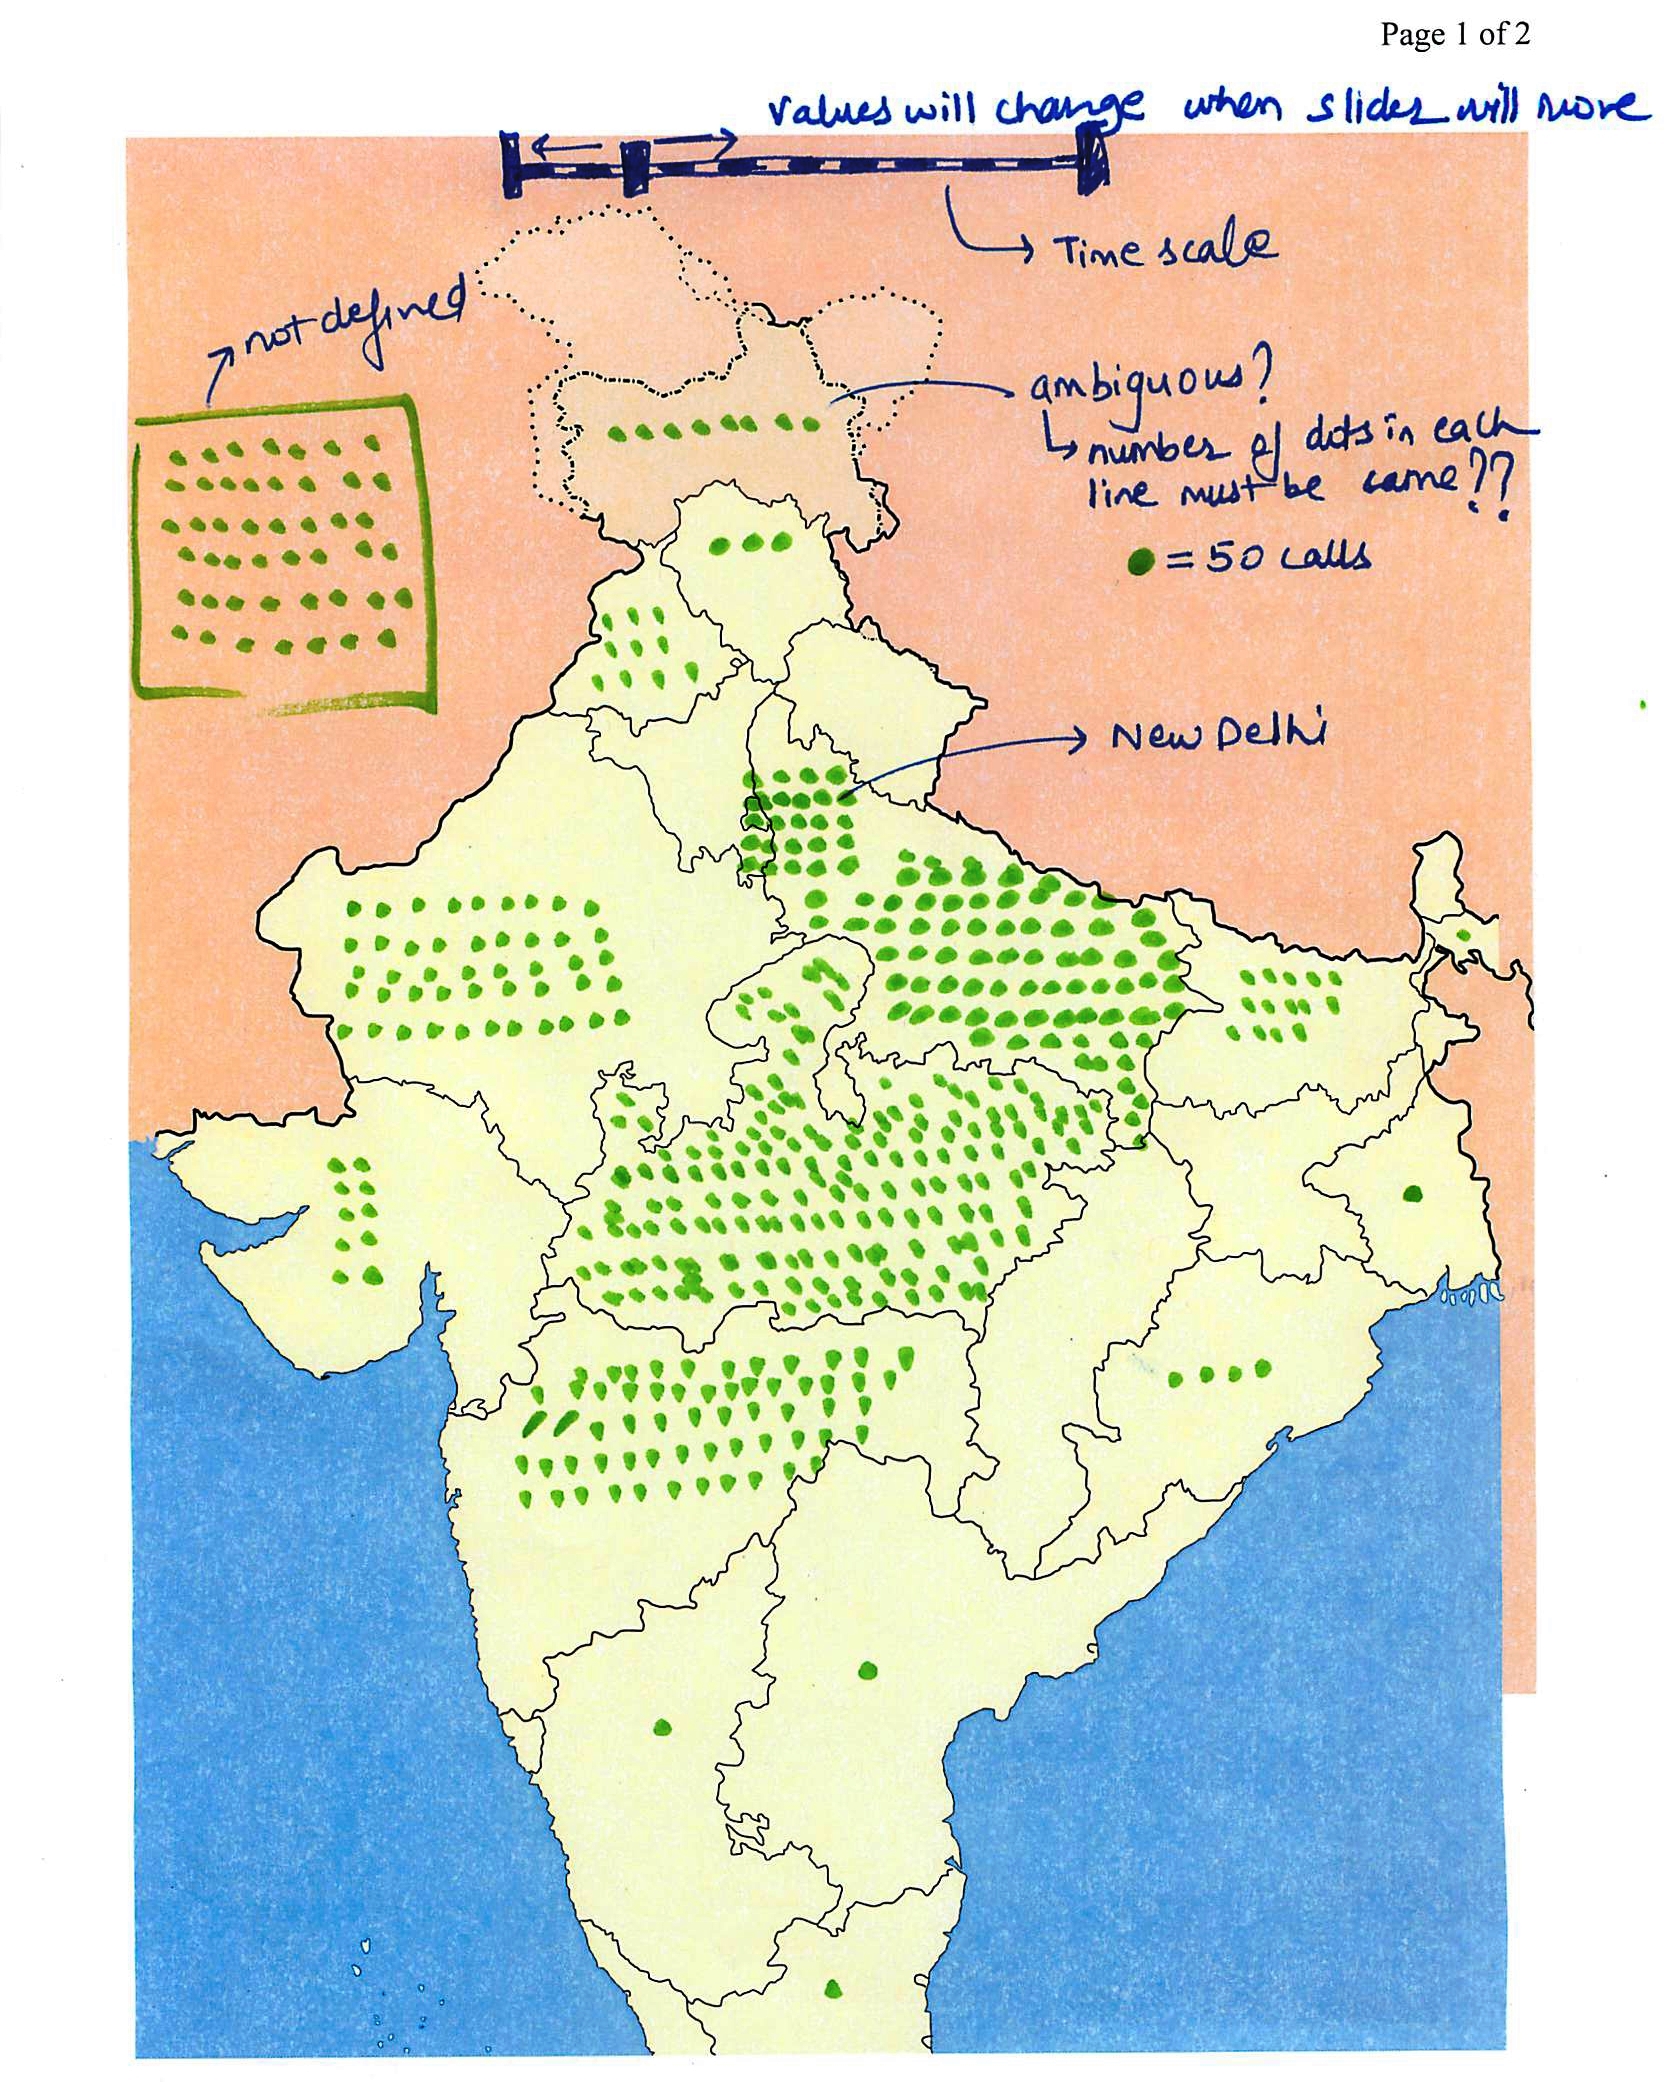 Page 1 of 2
values will change when slider will move
Time scale
not defined
ambiguous?
number of dots in each
line must be same??
= 50 calls
New Delhi